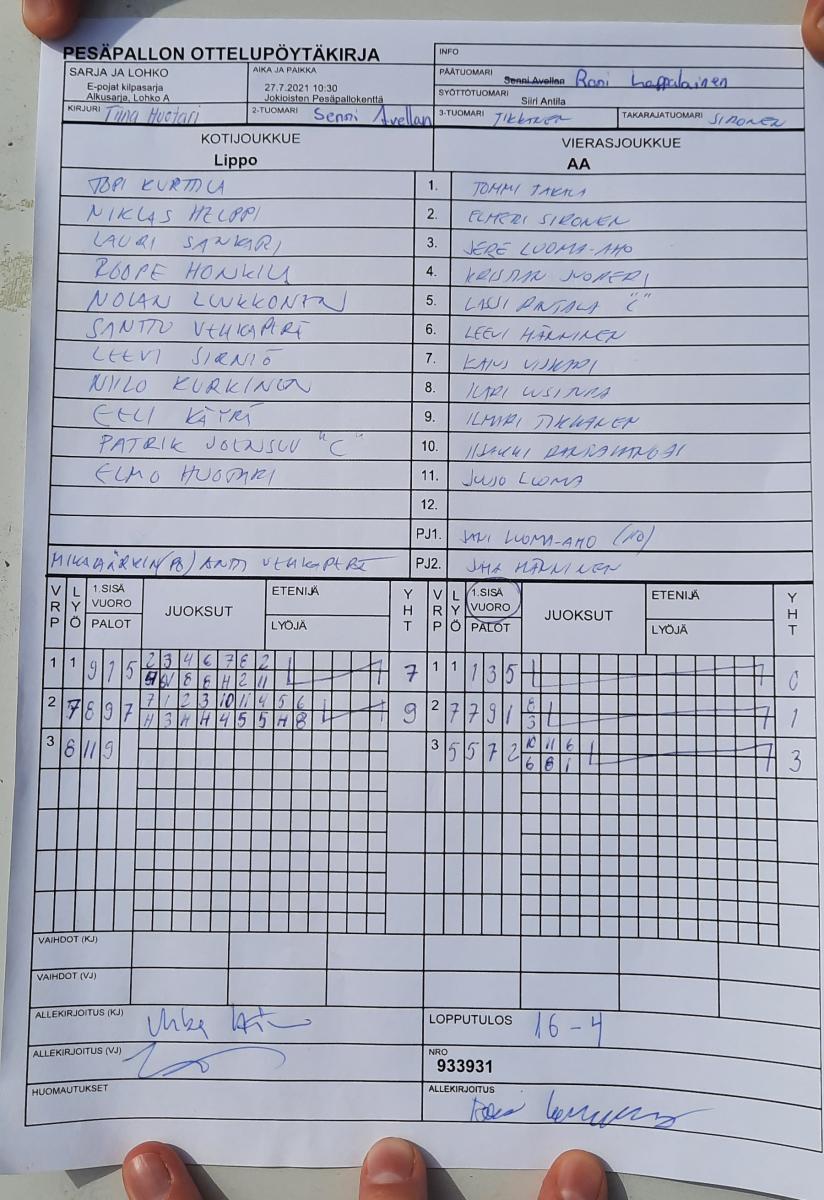 PESÄPALLON OTTELUPÖYTÄKIRJA
INFO
SARJA JA LOHKO
E-pojat kilpasarja
Alkusarja, Lohko A
AIKA JA PAIKKA
27.7.2021 10:30
Jokioisten Pesäpallokenttä
PÄÄTUOMARI Senni Avellan Roni Lappalainen
SYÖTTÖTUOMARI Siiri Antila
KIRJURI Tiina Huotari 2-TUOMARI Senni Avellan 3-TUOMARI TIKKANEN TAKARAJATUOMARI SIRONEN
KOTIJOUKKUE VIERASJOUKKUE
Lippo AA
TOPI KURTTILA 1. TOMMI
NIKLAS HELPPI 2. ELMERI SIRONEN
LAURI SANKARI 3. JERE LUOMA-AHO
ROOPE 4.
NOLAN LUUKKONEN 5. LASSI RINTALA "C"
SANTTU VEHKAPERÄ 6. LEEVI HÄNNINEN
LEEVI SIRNIÖ 7.
NIILO KURKINEN 8. ILARI
EELI KÄYRÄ 9. ILMARI TIKKANEN
PATRIK JOENSUU "C" 10.
ELMO HUOTARI 11. JUSO LUOMA
12.
PJ1. LUOMA-AHO
ANTTI VEHKAPERÄ PJ2. HÄNNINEN
VRP LYÖ 1.SISÄ VUORO PALOT JUOKSUT ETENIJÄ LYÖJÄ YHT VRP LYÖ 1.SISÄ VUORO PALOT JUOKSUT ETENIJÄ LYÖJÄ YHT
1 1 9 1 5 2 3 4 6 7 8 2 7 1 1 1 3 5 0
2 7 8 9 7 7 1 2 3 10 11 4 5 6 9 2 7 7 9 1 8 1
H 3 H H 4 5 5 H 8 3
3 8 11 9 3 5 5 7 2 10 11 6 3
6 8 1
VAIHDOT (KJ)
VAIHDOT (VJ)
ALLEKIRJOITUS (KJ) LOPPUTULOS 16-4
ALLEKIRJOITUS (VJ) NRO
933931
HUOMAUTUKSET ALLEKIRJOITUS